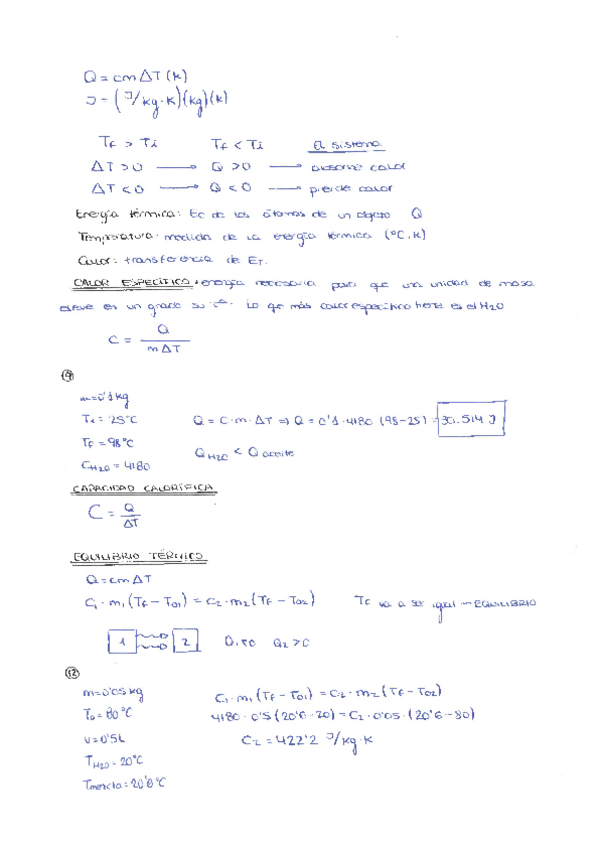 Q = cm ΔT (k)
J = (J/kg·k)(kg)(k)
Tf > Ti Tf < Ti El sistema
ΔT > 0 → Q > 0 → absorve calor
ΔT < 0 → Q < 0 → pierde calor
Energía térmica: Ec de los átomos de un objeto Q
Temperatura: medida de la energía térmica (ºC, K)
Calor: transferencia de ET.
CALOR ESPECÍFICO: energía necesaria para que una unidad de masa
eleve en un grado su tª. Lo que más calor específico tiene es el H2O
C = Q / mΔT
m = 0'1 kg
Ti = 25ºC Q = C·m·ΔT ⇒ Q = 0'1·4180 (98-25) = 30.514 J
Tf = 98ºC
QH2O < Q aceite
CH2O = 4180
CAPACIDAD CALORÍFICA
C = Q / ΔT
EQUILIBRIO TÉRMICO
Q = cmΔT
C1·m1(Tf - T01) = C2·m2(Tf - T02) Tf va a ser igual — EQUILIBRIO
1 2 Q1 < 0 Q2 > 0
12
m = 0'05 kg C1·m1(Tf - T01) = C2·m2(Tf - T02)
T0 = 80ºC 4180·0'5(20'6-20) = C2·0'05·(20'6-80)
v = 0'5L C2 = 422'2 J/kg·k
TH2O = 20ºC
Tmezcla = 20'6ºC